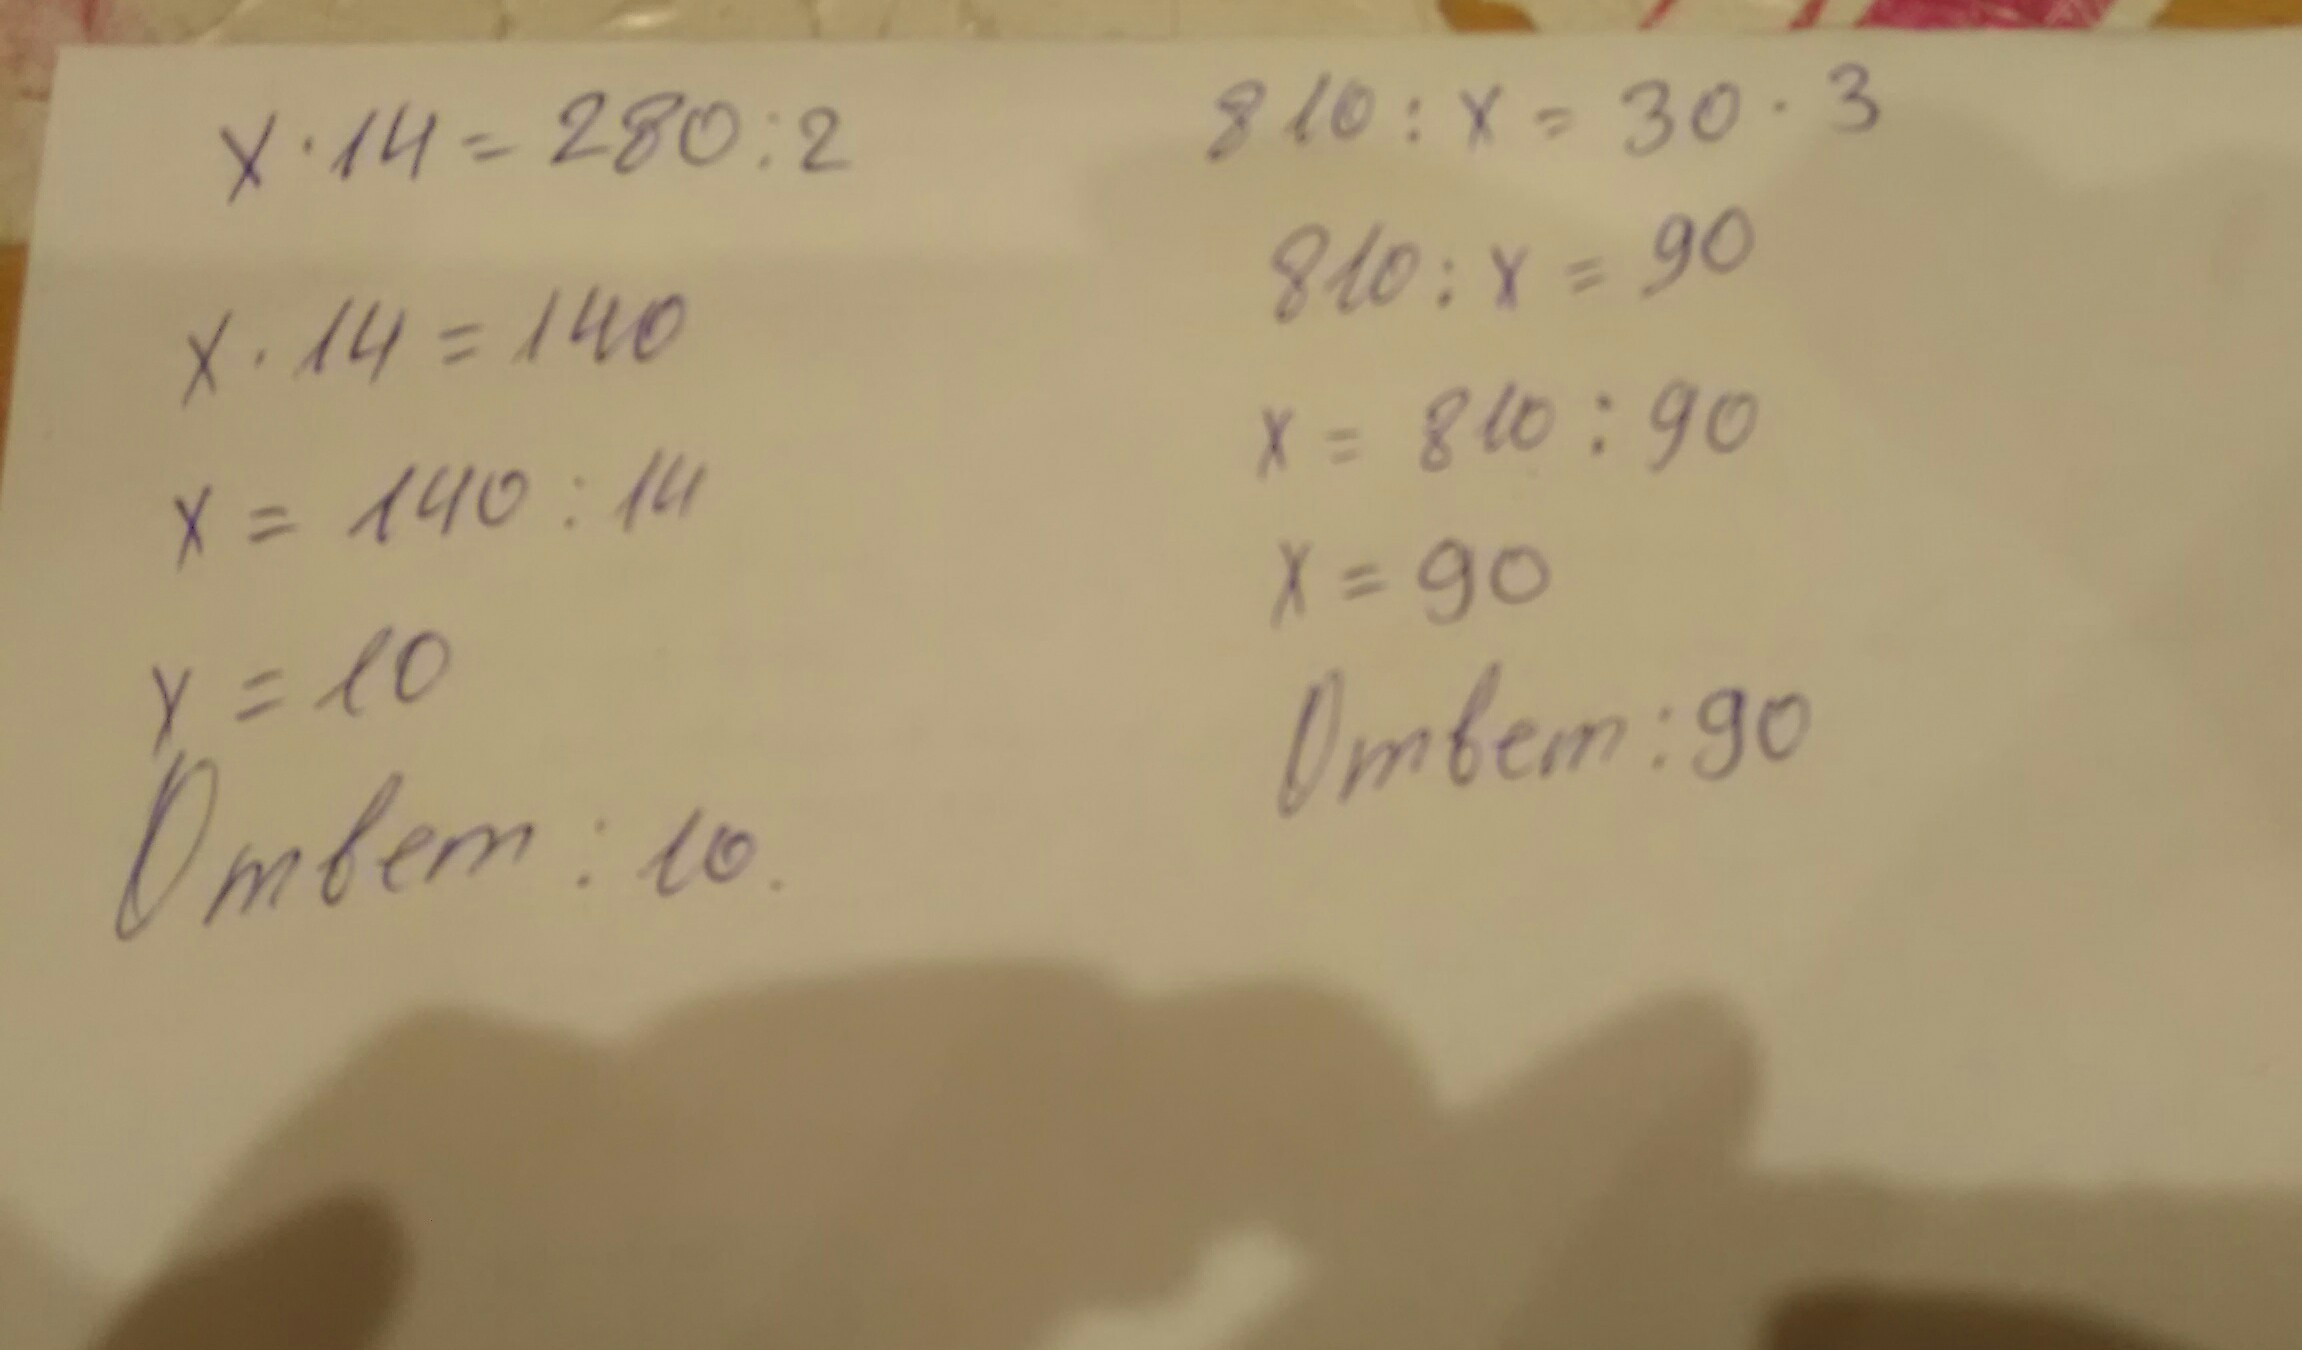 x · 14 = 280 : 2
x · 14 = 140
x = 140 : 14
x = 10
Ответ : 10.
810 : x = 30 · 3
810 : x = 90
x = 810 : 90
x = 90
Ответ : 90